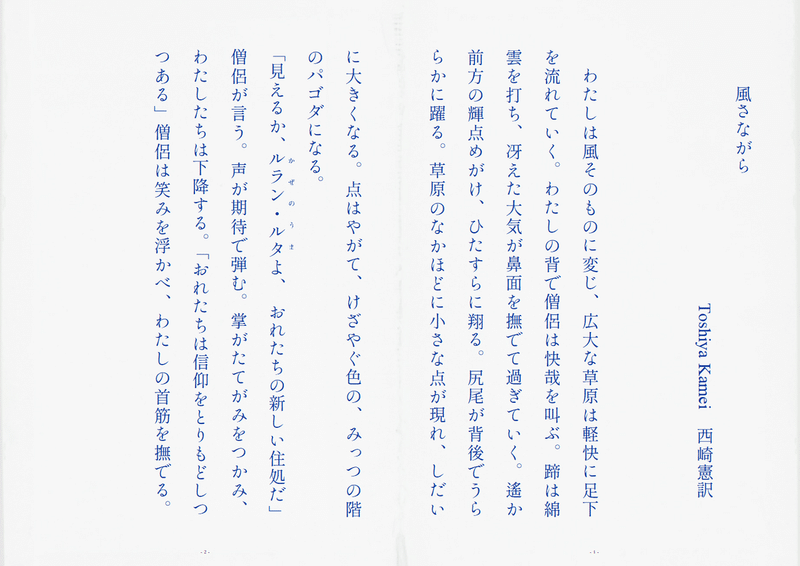 風さながら
Toshiya Kamei　西崎憲訳
わたしは風そのものに変じ、広大な草原は軽快に足下
を流れていく。わたしの背で僧侶は快哉を叫ぶ。蹄は綿
雲を打ち、冴えた大気が鼻面を撫でて過ぎていく。遙か
前方の輝点めがけ、ひたすらに翔る。尻尾が背後でうら
らかに躍る。草原のなかほどに小さな点が現れ、しだい
- 1 -
に大きくなる。点はやがて、けざやぐ色の、みっつの階
のパゴダになる。
「見えるか、ルラン・ルタよ、おれたちの新しい住処だ」
かぜのうま
僧侶が言う。声が期待で弾む。掌がたてがみをつかみ、
わたしたちは下降する。「おれたちは信仰をとりもどしつ
つある」僧侶は笑みを浮かべ、わたしの首筋を撫でる。
- 2 -